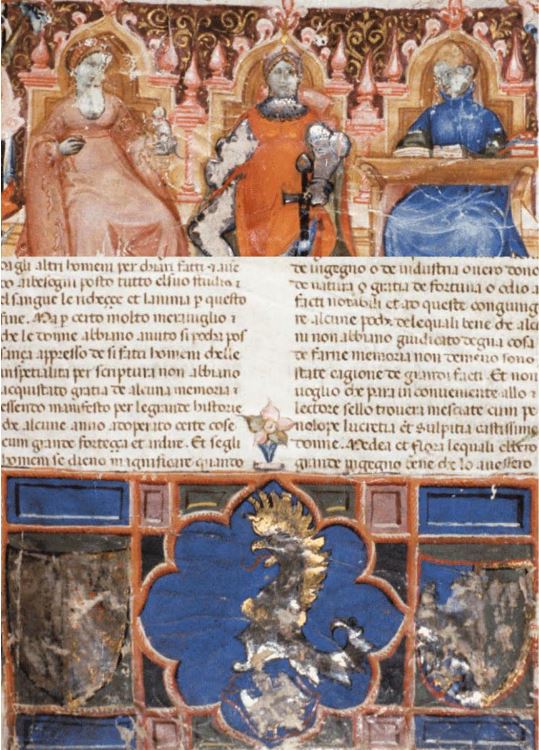 gli altri homeni per chiari fatti ⁊ aue
posto tutto el suo studio ⁊
el sangue le richeççe et lanima p questo
fine. Ma p certo molto meraviglio ⁊
che le donne abbiano auuto si pos
sança appresso de si fatti homeni chelle
inspetialita per scriptura non abbiano
acquistato gratia de alcuna memoria ⁊
essendo manifesto per le grande historie
che alcune anno adoperato certe cose
cum grande forteçça et ardire. Et segli
homeni se dieno magnificare quanto
de ingegno o de industria ouero dono
de natura o gratia de fortuna o odio a
facti notabili et ad queste congiunge
re alcune dele quali bene che alcu
ni non abbiano giudicato degna cosa
de farne memoria non demeno sono
state cagione de grandi facti. Et non
voglio che para inconueniente allo ⁊
lectore sello trouera mescate cum pe
nolope lucretia et sulpitia castissime
donne. Medea et flora lequali ebbero
grande ingegno bene che lo auessero